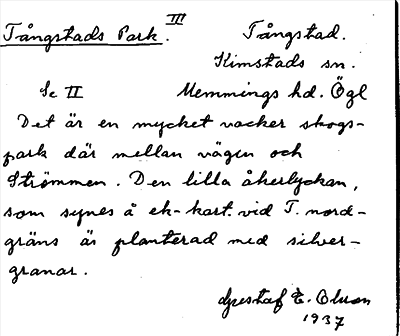 Tångstads Park. III
Tångstad.
Kimstads sn.
Sc II
Memmings hd. Ögl
Det är en mycket vacker skogs-
park där mellan vägen och
Strömmen. Den lilla åkerlyckan,
som synes å ek-kart. vid T. nord-
gräns är planterad med silver-
granar.
Gustaf E. Olson
1937